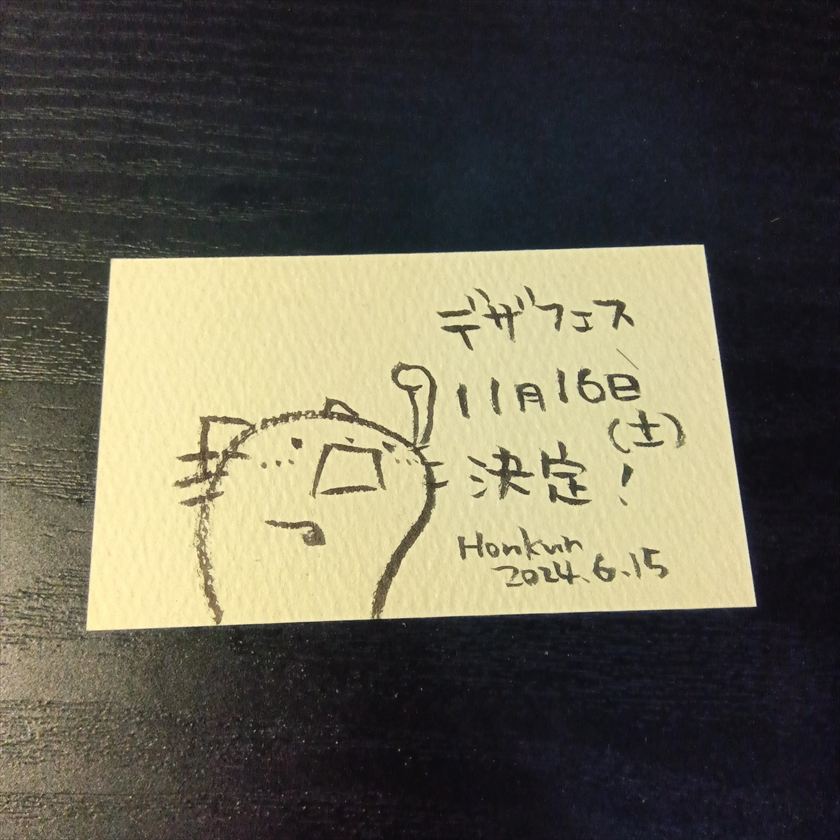 デザフェス
11月16日
(土)
決定!
Honkun
2024.6.15